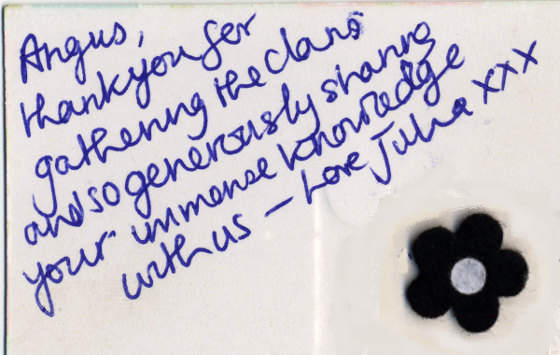 Angus,
thankyou for
gathering the clans
and so generously sharing
your immense knowledge
with us – Love Julia xxx